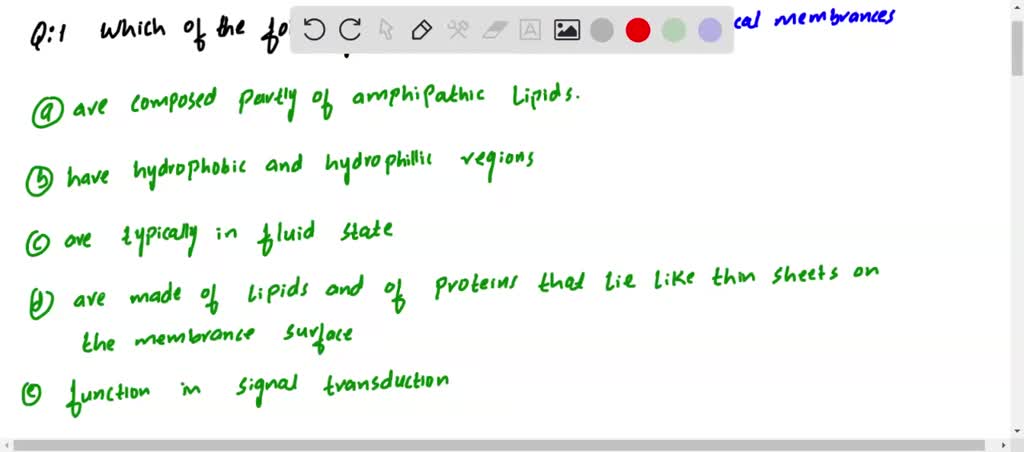 Q:1 Which of the cal membrances
(a) are composed partly of amphipathic Lipids.
(b) have hydrophobic and hydrophillic regions
(c) are typically in fluid state
(d) are made of Lipids and of proteins that lie like thin sheets on
the membrance surface
(e) function in signal transduction